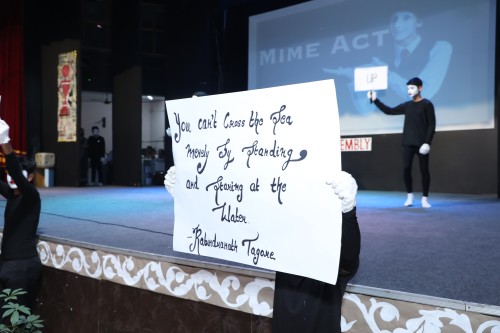 MIME ACT
UP
EMBLY
You can't Cross the Sea
merely By Standing
and Staring at the
Water.
-Rabindranath Tagore.